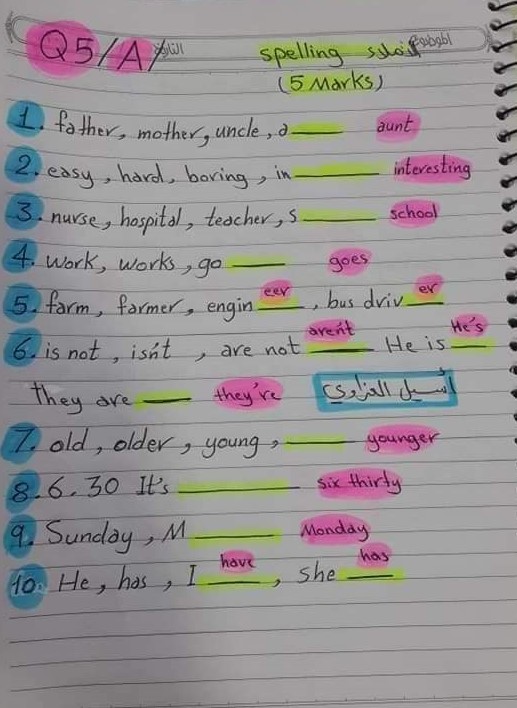 Q5/A/ التاريخ الموضوع
spelling الاملاء
(5 Marks)
1. father, mother, uncle, a____ aunt
2. easy, hard, boring, in____ interesting
3. nurse, hospital, teacher, s____ school
4. work, works, go____ goes
5. farm, farmer, engin eer, bus driv er
6. is not, isn't, are not aren't He is He's
they are ____ they're أسيل العزاوي
7. old, older, young, ____ younger
8. 6.30 It's ____ six thirty
9. Sunday, M____ Monday
10. He, has, I have, she has